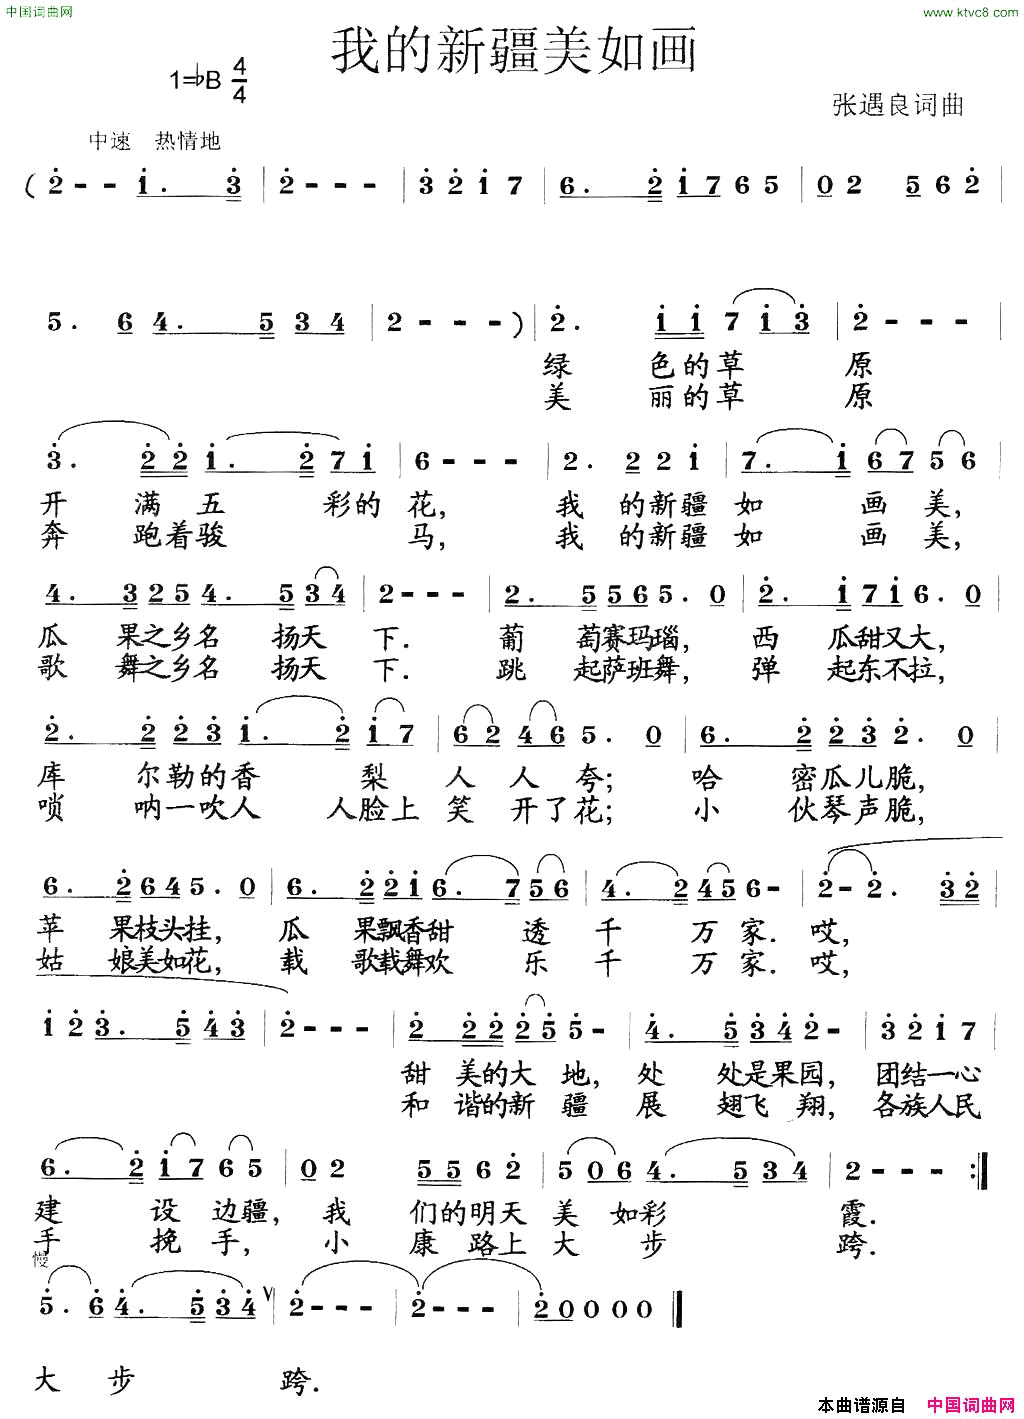 中国词曲网
www.ktvc8.com
我的新疆美如画
1=♭B 4/4
张遇良词曲
中速 热情地
(2-- 1. 3 | 2--- | 3 2 1 7 | 6. 2 1 7 6 5 | 0 2 5 6 2 |
5. 6 4. 5 3 4 | 2---) | 2. 1 1 7 1 3 | 2--- |
绿 色的草 原
美 丽的草 原
3. 2 2 1. 2 7 1 | 6--- | 2. 2 2 1 | 7. 1 6 7 5 6 |
开 满 五 彩的 花, 我 的新疆 如 画 美,
奔 跑着骏 马, 我 的新疆 如 画 美,
4. 3 2 5 4. 5 3 4 | 2--- | 2. 5 5 6 5. 0 | 2. 1 7 1 6. 0 |
瓜 果之乡名 扬天 下. 葡 萄赛玛瑙, 西 瓜甜又大,
歌 舞之乡名 扬天 下. 跳 起萨班舞, 弹 起东不拉,
2. 2 2 3 1. 2 1 7 | 6 2 4 6 5. 0 | 6. 2 2 3 2. 0 |
库 尔勒的香 梨 人 人 夸; 哈 密瓜儿脆,
唢 呐一吹人 人脸上 笑 开了花; 小 伙琴声脆,
6. 2 6 4 5. 0 | 6. 2 2 1 6. 7 5 6 | 4. 2 4 5 6- | 2-2. 3 2 |
苹 果枝头挂, 瓜 果飘香甜 透 千 万 家. 哎,
姑 娘美如花, 载 歌载舞欢 乐 千 万 家. 哎,
1 2 3. 5 4 3 | 2--- | 2 2 2 2 5 5- | 4. 5 3 4 2- | 3 2 1 7 |
甜 美的大 地, 处 处是果园, 团结一心
和 谐的新 疆 展 翅飞 翔, 各族人民
6. 2 1 7 6 5 | 0 2 5 5 6 2 | 5 0 6 4. 5 3 4 | 2--- :‖
建 设 边疆, 我 们的明天 美 如彩 霞.
手 挽 手, 小 康 路上 大 步 跨.
慢
5. 6 4. 5 3 4 ∨ | 2--- | 2--- | 2 0 0 0 0 ‖
大 步 跨.
本曲谱源自 中国词曲网